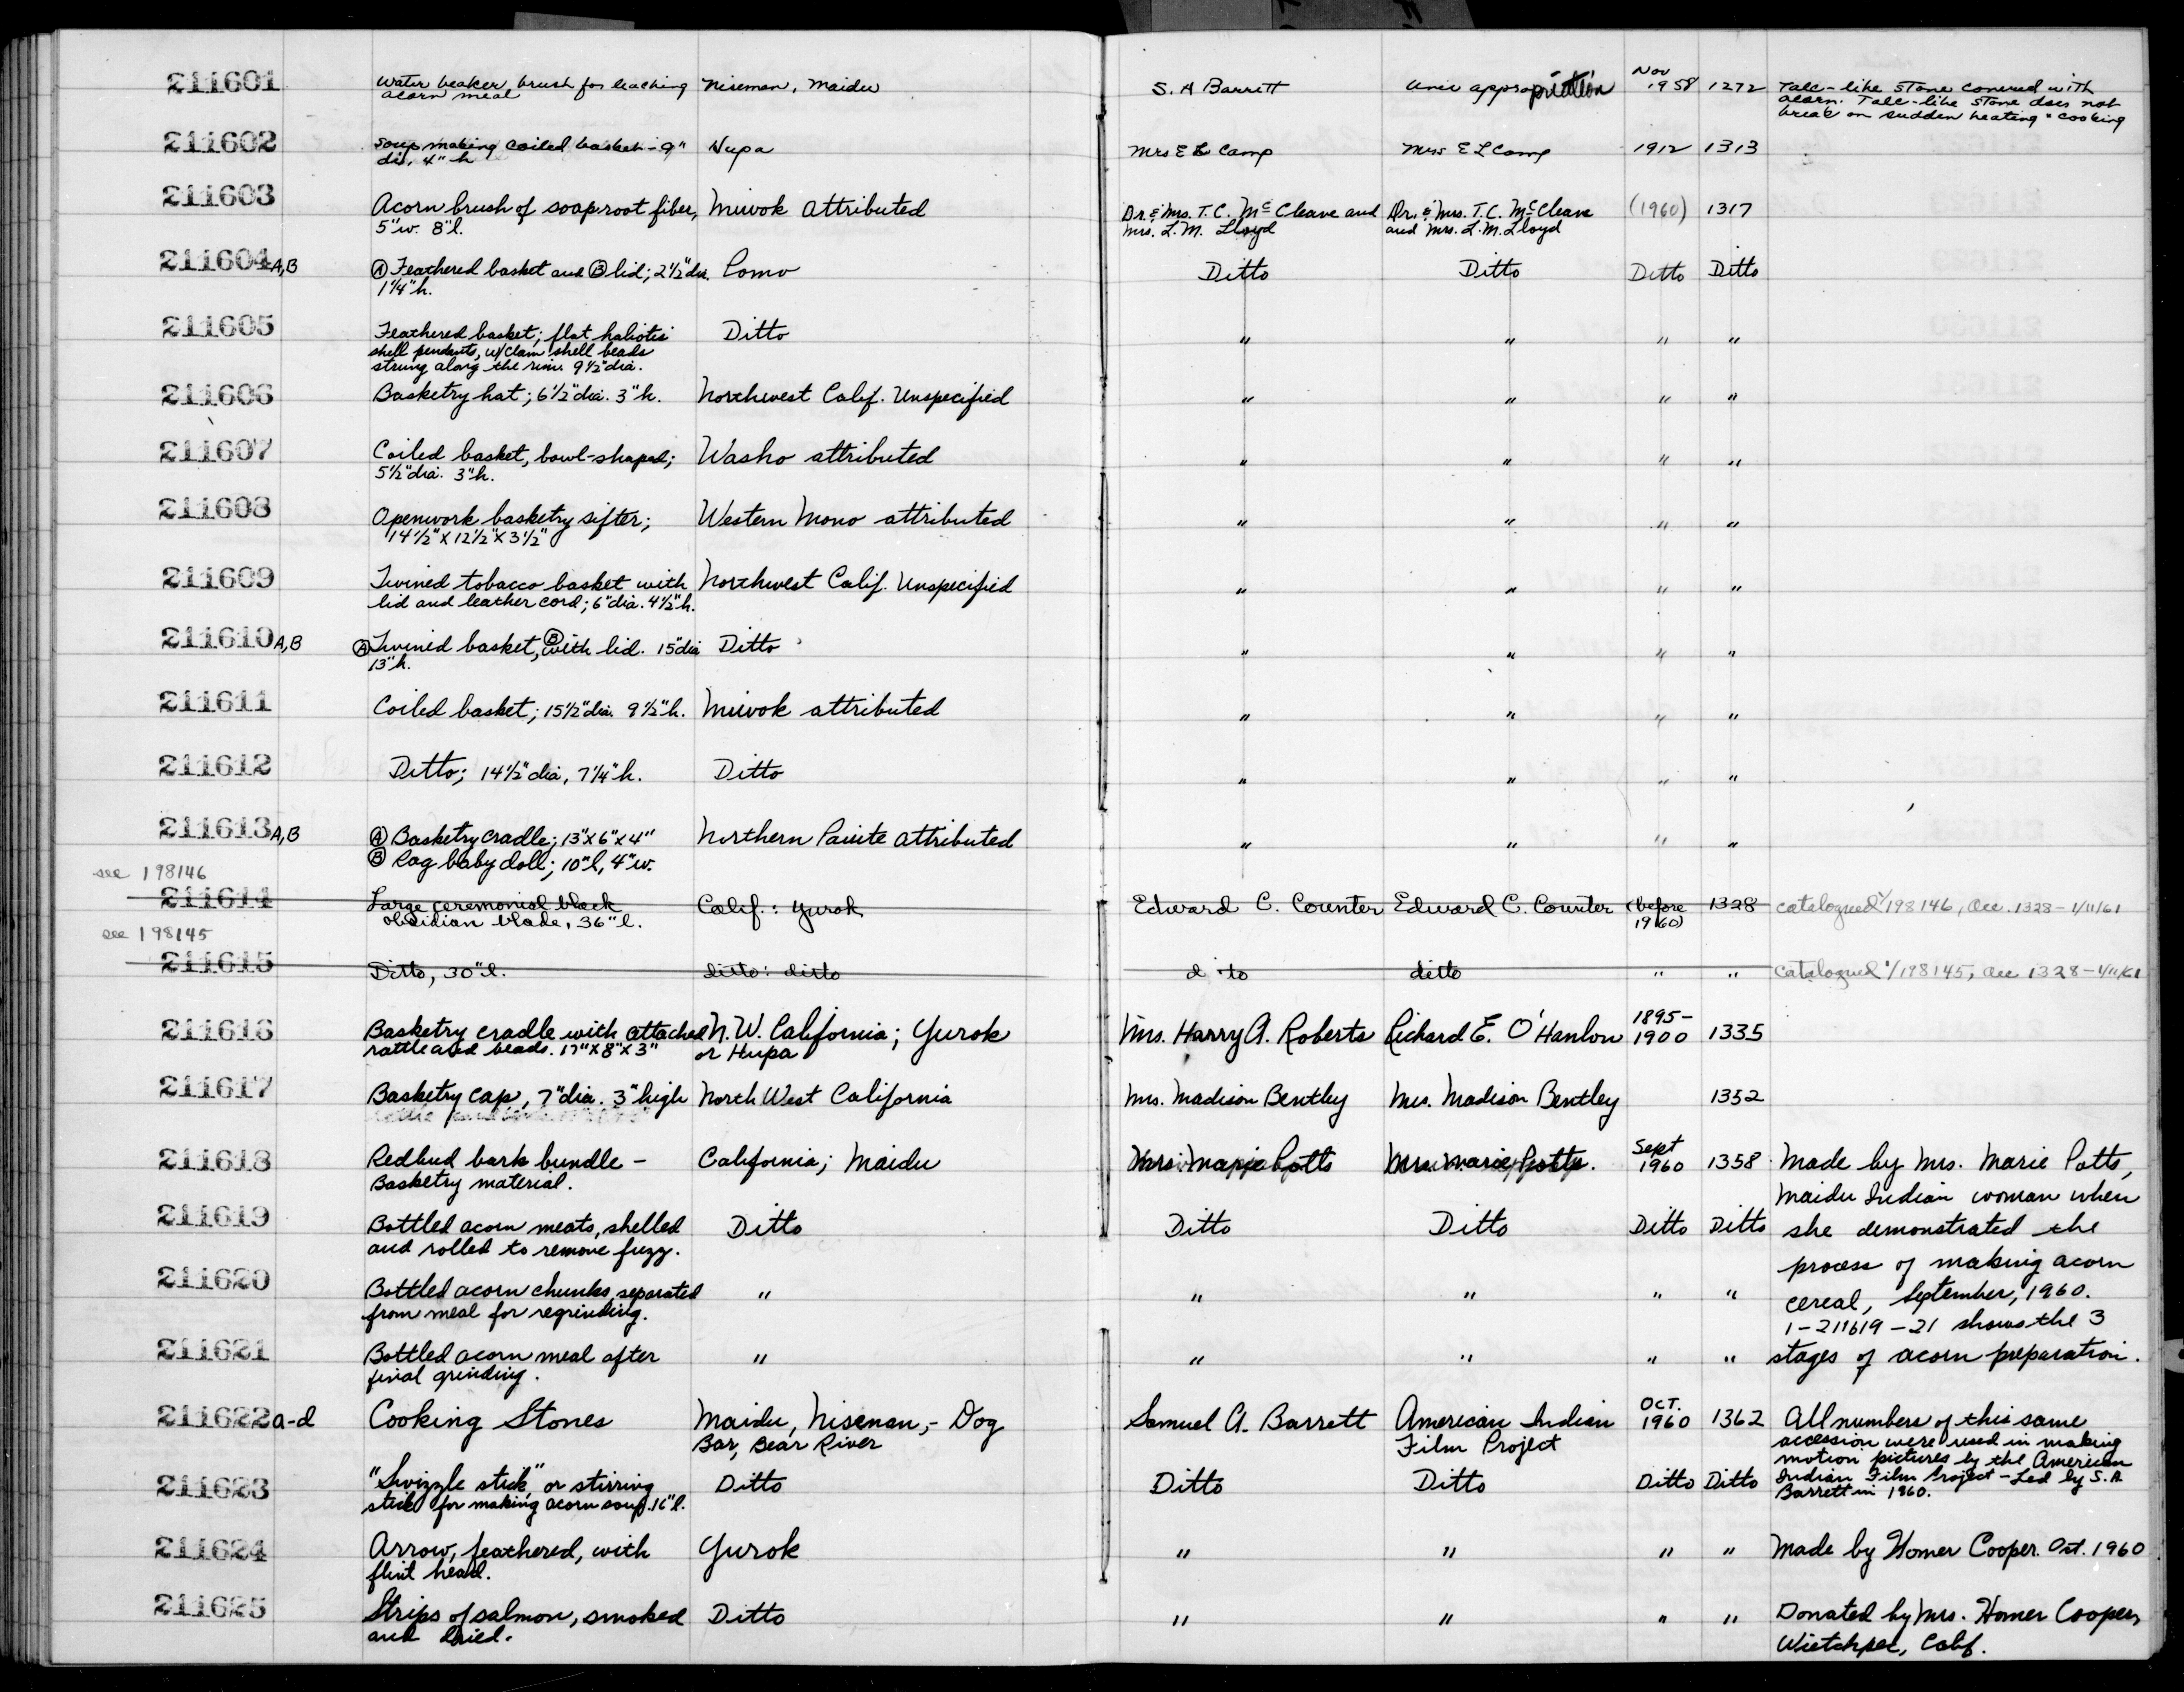 211601 Water beaker, brush for leaching Nisenan, Maidu S. A Barrett Univ appropriation Nov 1958 1272 Talc-like stone covered with
acorn meal acorn. Talc-like stone does not
break on sudden heating + cooking
211602 Soup making coiled basket - 9" Hupa Mrs E L Camp Mrs E L Camp 1912 1313
dia, 4" h
211603 Acorn brush of soaproot fiber, Miwok attributed Dr. & Mrs. T.C. McCleave and Dr. & Mrs. T.C. McCleave (1960) 1317
5"w. 8"l. Mrs. L.M. Lloyd and Mrs. L.M. Lloyd
211604 A,B Ⓐ Feathered basket and Ⓑ lid; 2½"dia. Pomo Ditto Ditto Ditto Ditto
1¼"h.
211605 Feathered basket; flat haliotis Ditto " " " "
shell pendants, w/clam shell beads
strung along the rim. 9½"dia.
211606 Basketry hat; 6½"dia. 3"h. Northwest Calif. Unspecified " " " "
211607 Coiled basket, bowl-shaped; Washo attributed " " " "
5½"dia. 3"h.
211608 Openwork basketry sifter; Western Mono attributed " " " "
14½" X 12½" X 3½"
211609 Twined tobacco basket with Northwest Calif. Unspecified " " " "
lid and leather cord; 6"dia. 4½"h.
211610 A,B Ⓐ Twined basket, Ⓑ with lid. 15"dia Ditto " " " "
13"h.
211611 Coiled basket; 15½"dia. 9½"h. Miwok attributed " " " "
211612 Ditto; 14½"dia, 7¼"h. Ditto " " " "
211613 A,B Ⓐ Basketry cradle; 13"x6"x4" Northern Paiute attributed " " " "
Ⓑ Rag baby doll; 10"l, 4"w.
see 198146
211614 Large ceremonial black Calif.: Yurok Edward C. Counter Edward C. Counter (before 1960) 1328 catalogued 1/198146, Acc. 1328 - 1/11/61
obsidian blade, 36"l.
see 198145
211615 Ditto, 30"l. ditto: ditto ditto ditto " " Catalogued 1/198145, Acc 1328 - 1/11/61
211616 Basketry cradle with attached N.W. California; Yurok Mrs. Harry A. Roberts Richard E. O'Hanlon 1895-1900 1335
rattle and beads. 17"X8"X3" or Hupa
211617 Basketry cap, 7"dia. 3"high North West California Mrs. Madison Bentley Mrs. Madison Bentley 1352
211618 Redbud bark bundle - California; Maidu Mrs. Marie Potts Mrs. Marie Potts. Sept 1960 1358 Made by Mrs. Marie Potts,
Basketry material. Maidu Indian woman when
211619 Bottled acorn meats, shelled Ditto Ditto Ditto Ditto Ditto she demonstrated the
and rolled to remove fuzz. process of making acorn
211620 Bottled acorn chunks, separated " " " " " cereal, September, 1960.
from meal for regrinding. 1-211619-21 shows the 3
211621 Bottled acorn meal after " " " " " stages of acorn preparation.
final grinding.
211622 a-d Cooking Stones Maidu, Nisenan, - Dog Samuel A. Barrett American Indian OCT. 1960 1362 All numbers of this same
Bar, Bear River Film Project accession were used in making
motion pictures by the American
211623 "Swizzle stick" or stirring Ditto Ditto Ditto Ditto Ditto Indian Film Project - Led by S.A.
stick for making acorn soup. 16"l. Barrett in 1960.
211624 Arrow, feathered, with Yurok " " " " Made by Homer Cooper. Oct. 1960
flint head.
211625 Strips of salmon, smoked Ditto " " " " Donated by Mrs. Homer Cooper,
and dried. Wietchpec, Calif.